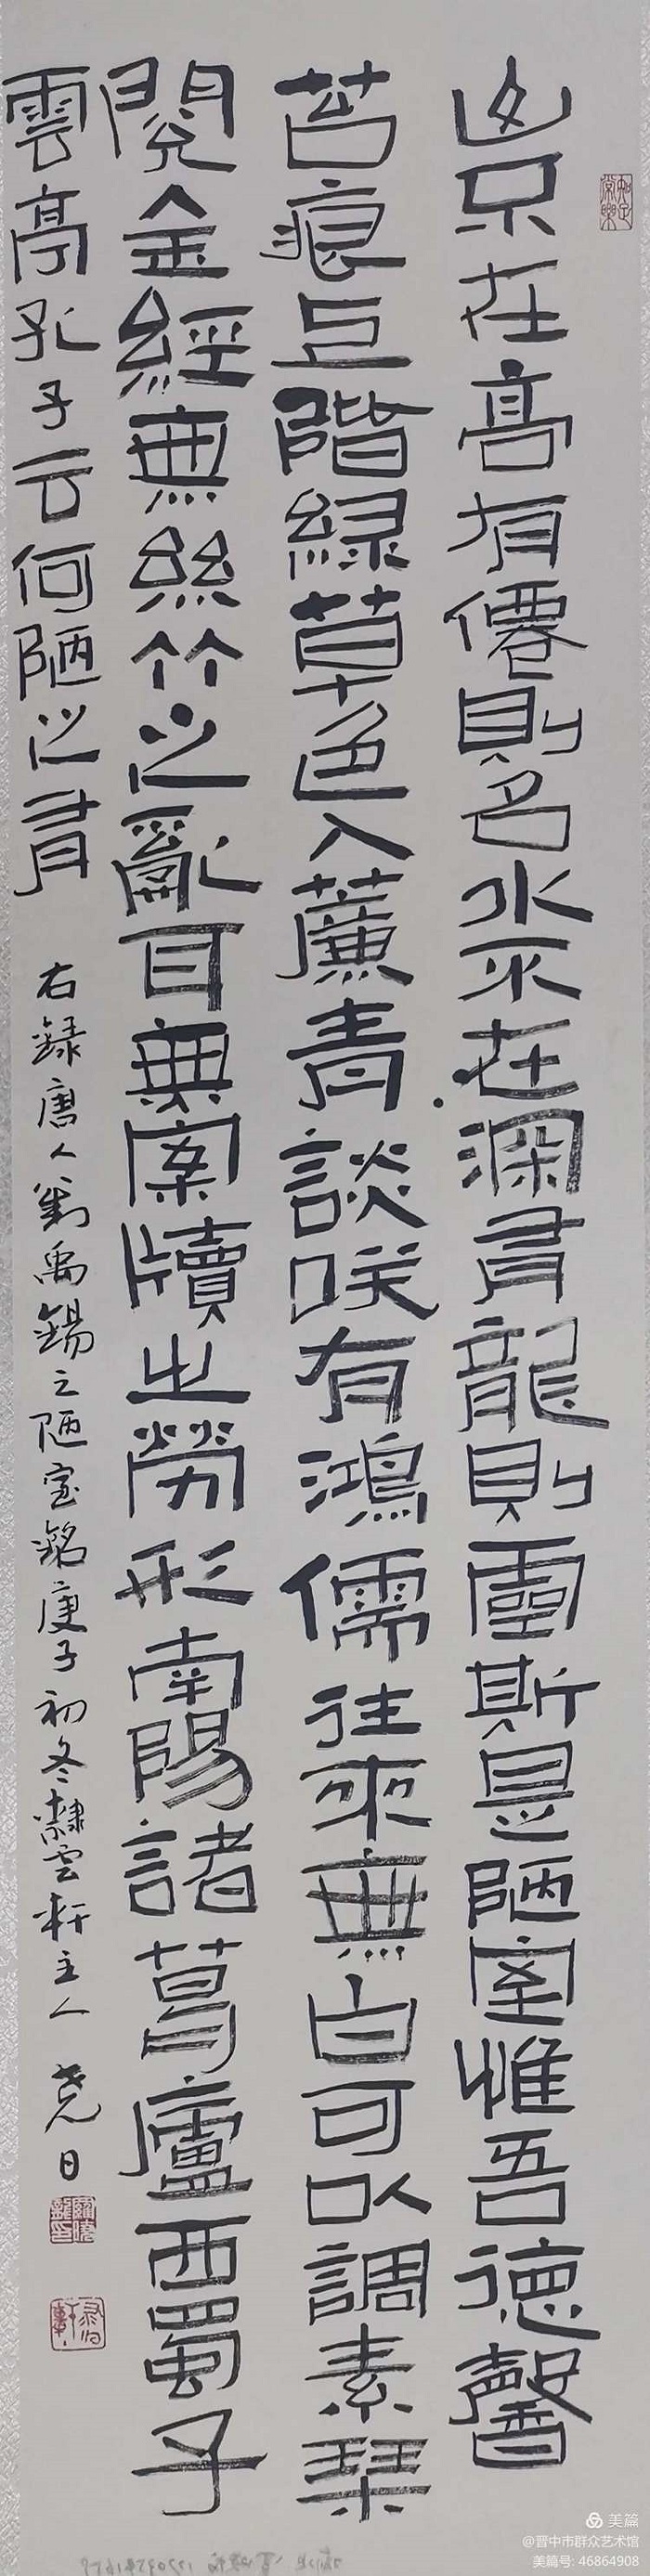 山不在高有僊則名水不在深有龍則靈斯是陋室惟吾德馨
苔痕上階綠草色入簾青談咲有鴻儒往來無白可以調素琴
閱金經無絲竹之亂耳無案牘之勞形南陽諸葛廬西蜀子
雲亭孔子云何陋之有
右錄唐人劉禹錫之陋室銘庚子初冬隸雲軒主人 堯日
美篇
@晋中市群众艺术馆
美篇号: 46864908